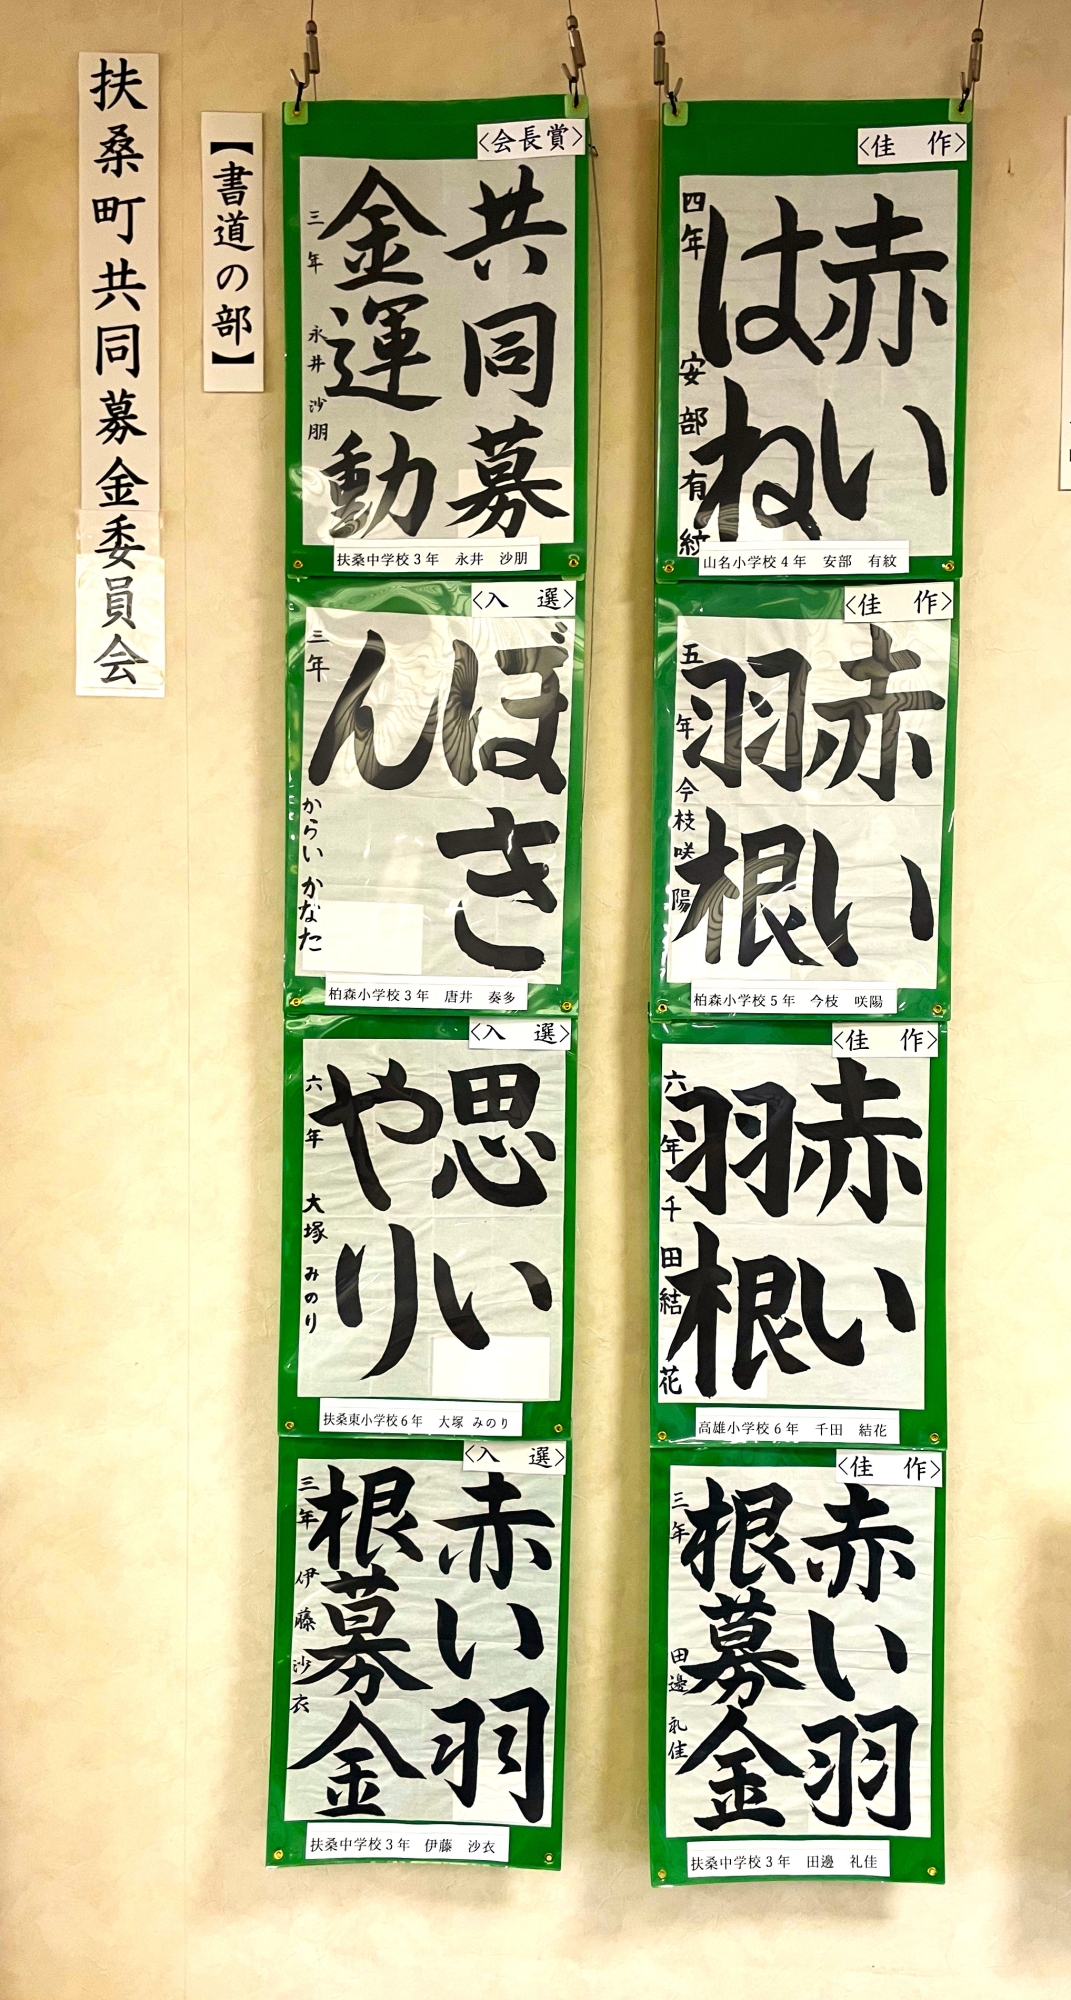 扶桑町共同募金委員会
【書道の部】
〈会長賞〉
共同募
金運動
三年 永井沙朋
扶桑中学校3年 永井 沙朋
〈入 選〉
ぼき
ん
三年 からい かなた
柏森小学校3年 唐井 奏多
〈入 選〉
思い
やり
六年 大塚 みのり
扶桑東小学校6年 大塚 みのり
〈入 選〉
赤い羽
根募金
三年 伊藤沙衣
扶桑中学校3年 伊藤 沙衣
〈佳 作〉
赤い
はね
四年 安部有紋
山名小学校4年 安部 有紋
〈佳 作〉
赤い
羽根
五年 今枝咲陽
柏森小学校5年 今枝 咲陽
〈佳 作〉
赤い
羽根
六年 千田結花
高雄小学校6年 千田 結花
〈佳 作〉
赤い羽
根募金
三年 田邊礼佳
扶桑中学校3年 田邊 礼佳